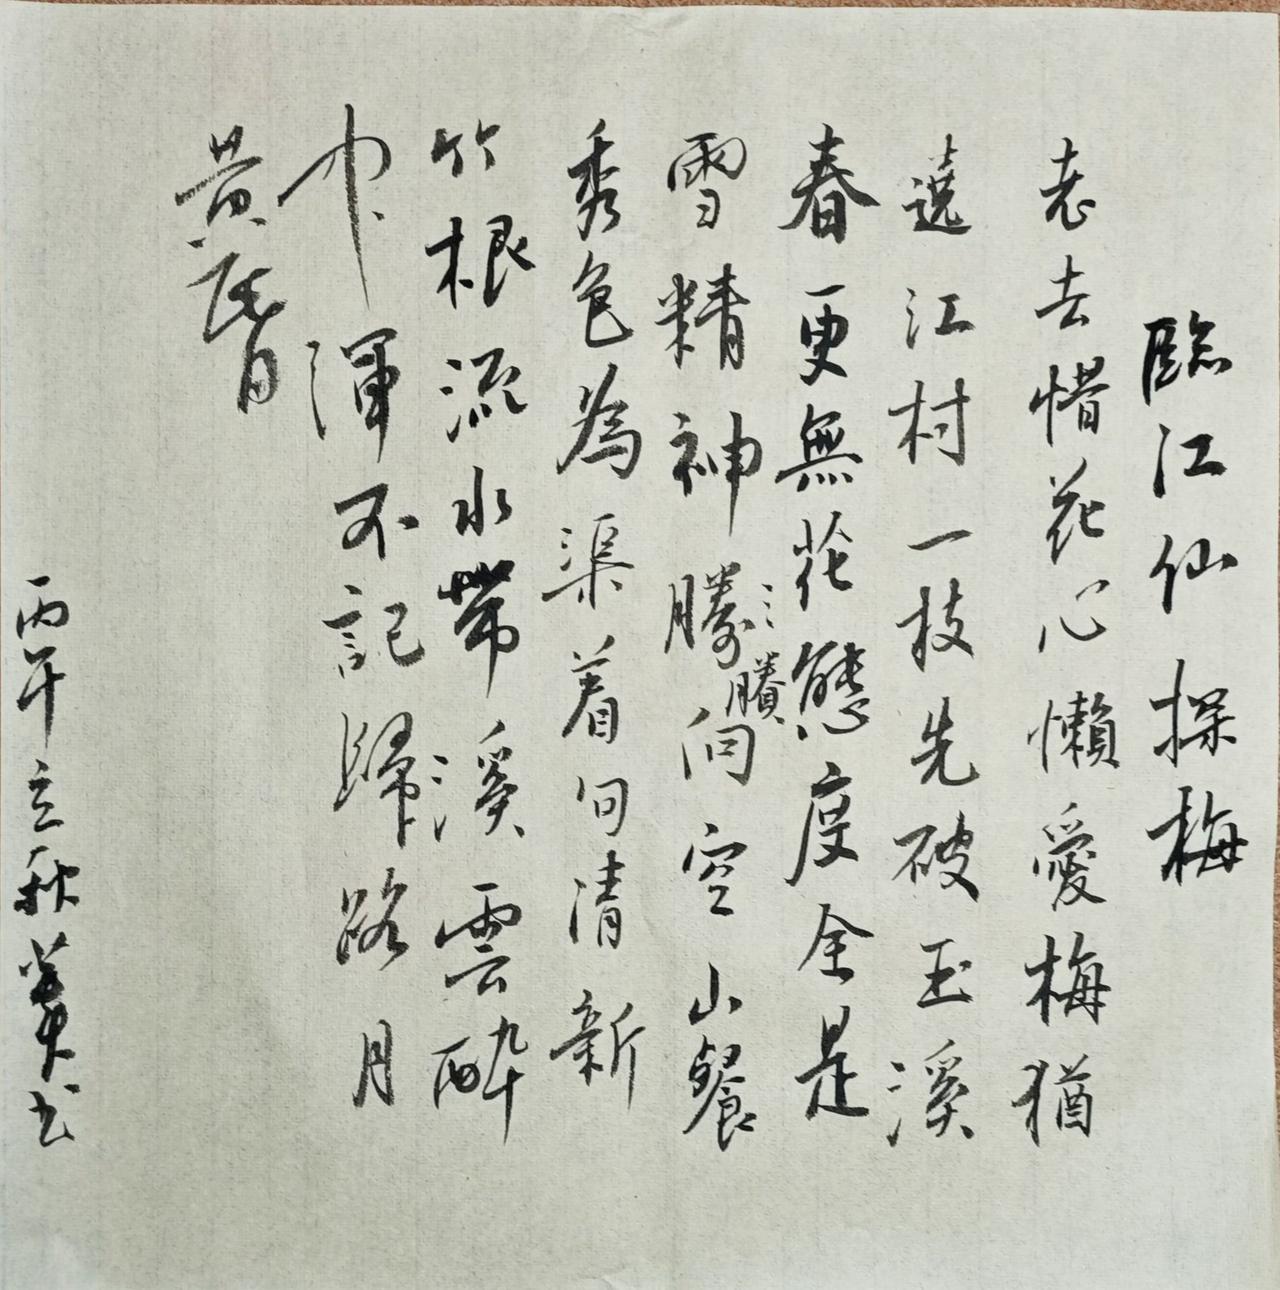 臨江仙探梅
老去惜花心懶愛梅猶
遶江村一枝先破玉溪
春更無花態度全是
雪精神勝向空山餐
賸
秀色為渠着句清新
竹根流水帶溪雲醉
中渾不記歸路月
黄昏
丙午立秋書